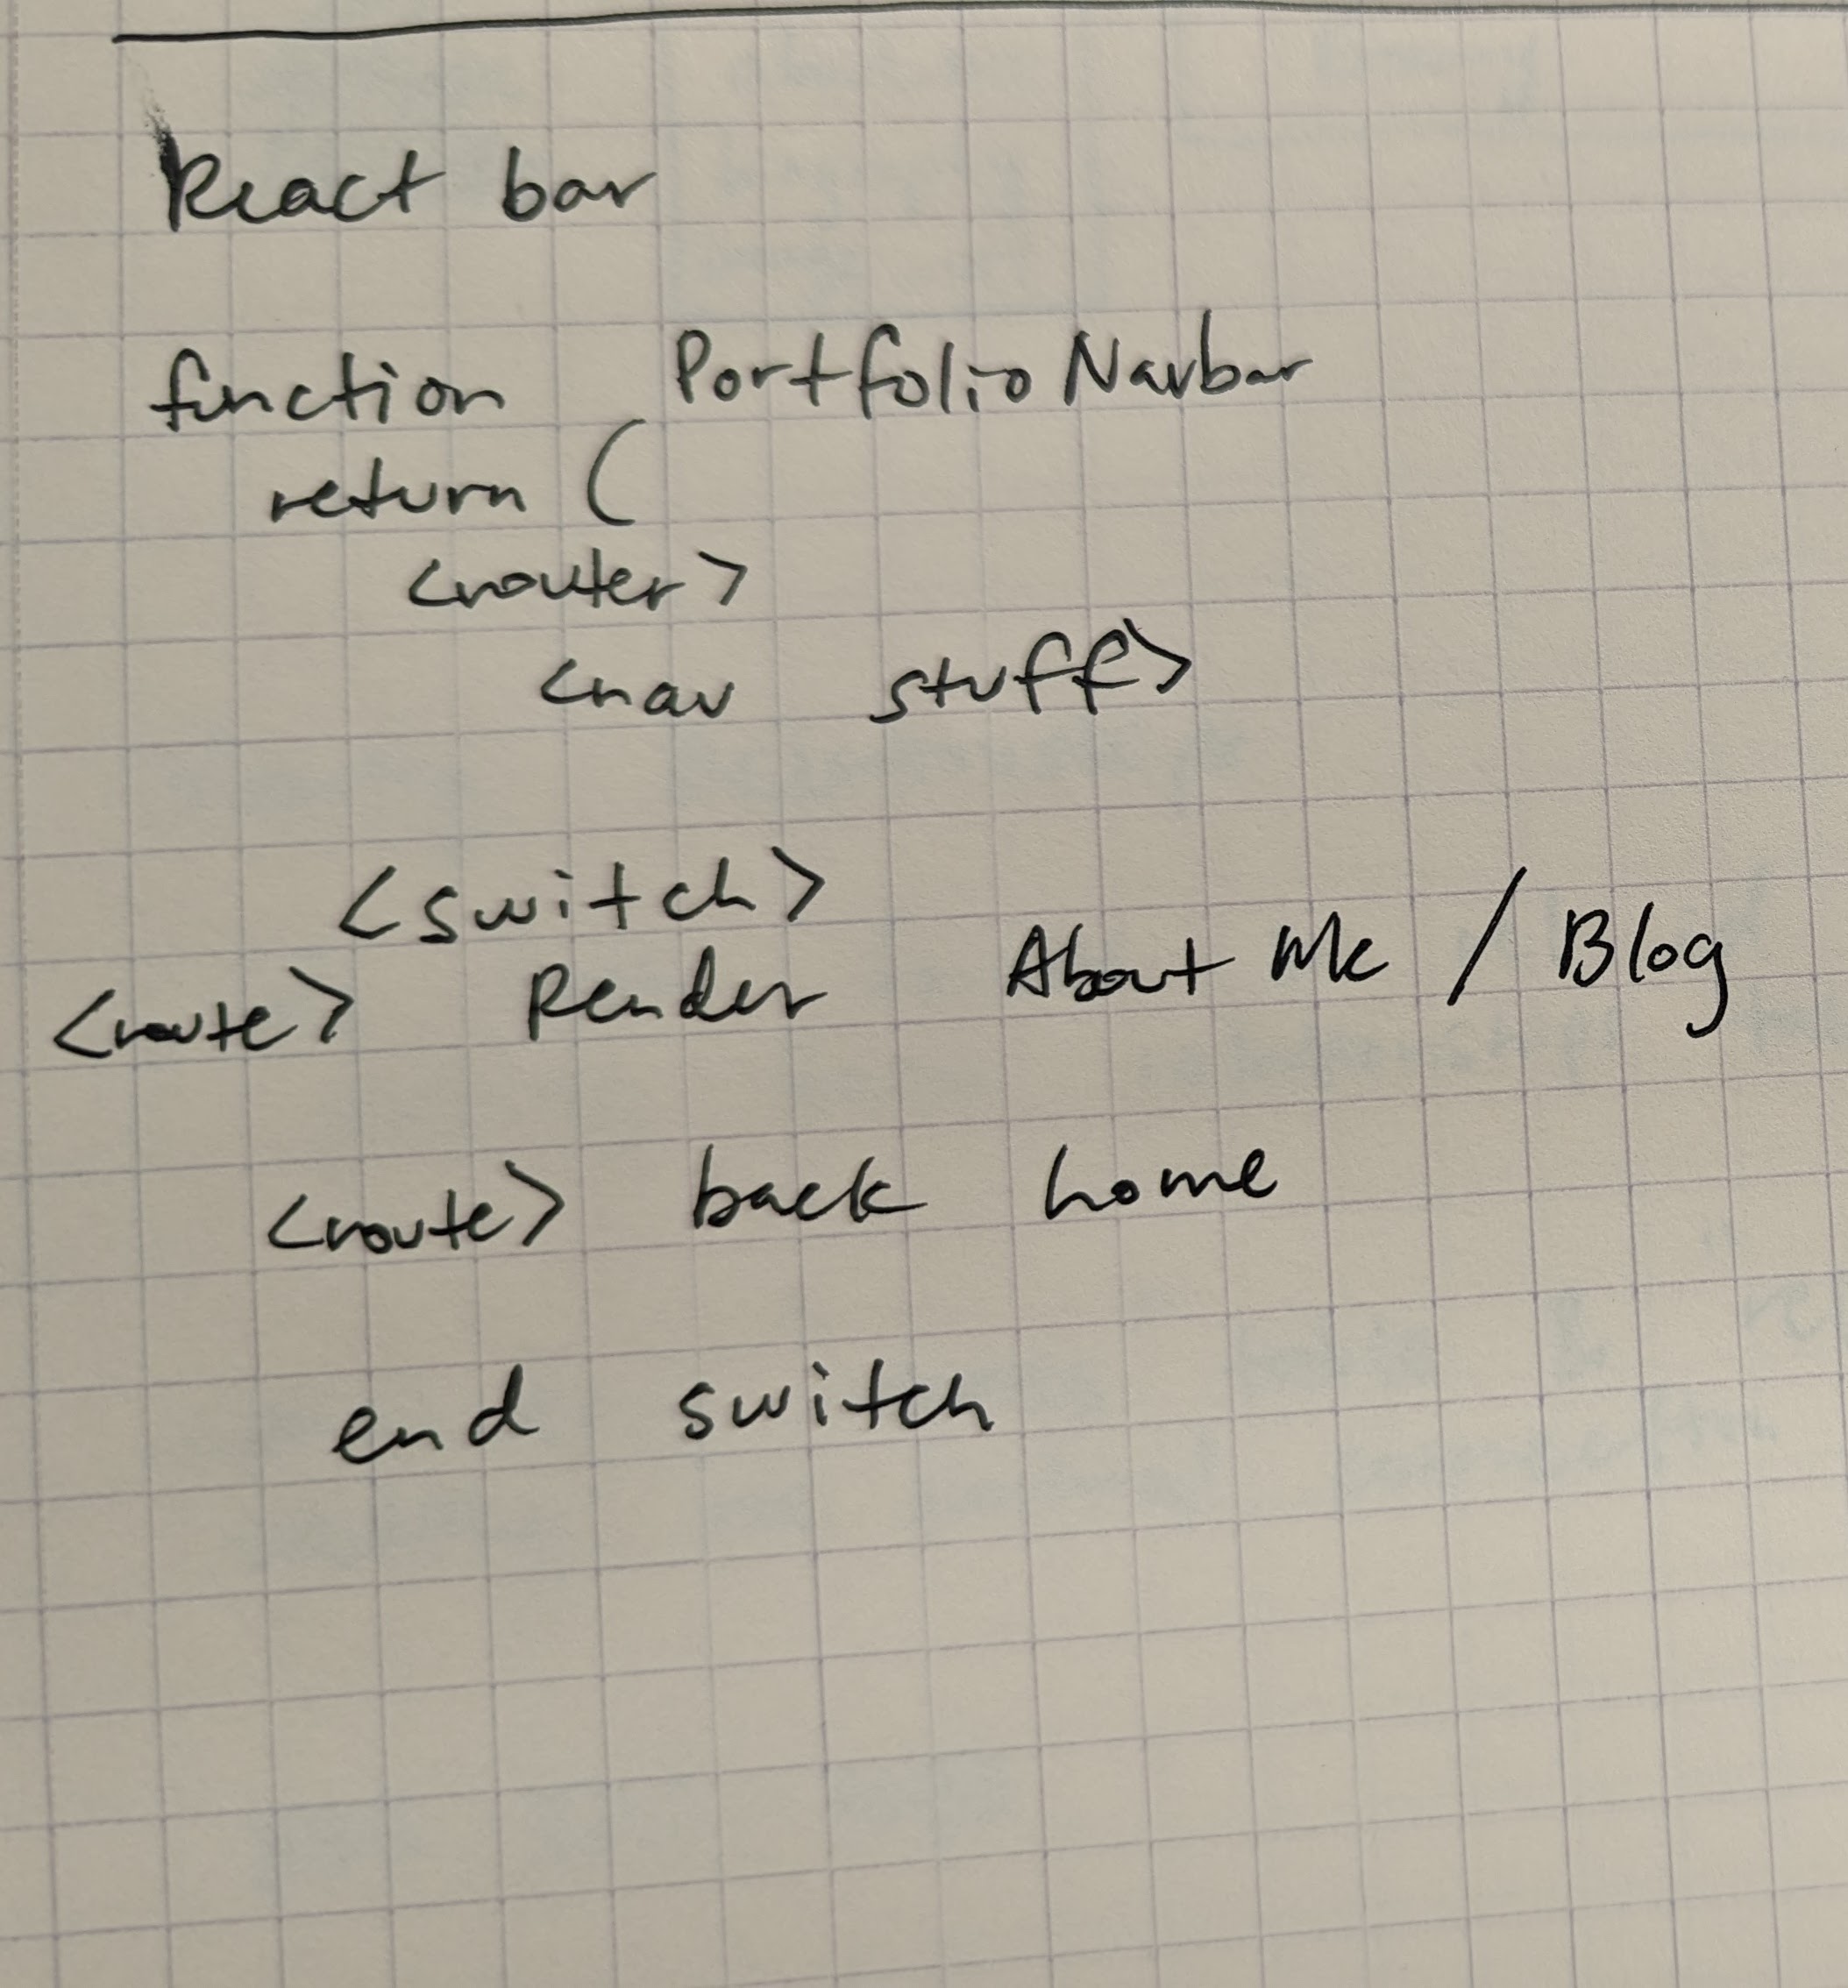 React bar
function PortfolioNavbar
return (
<router>
<nav stuff>
<switch>
<route> Render About Me / Blog
<route> back home
end switch